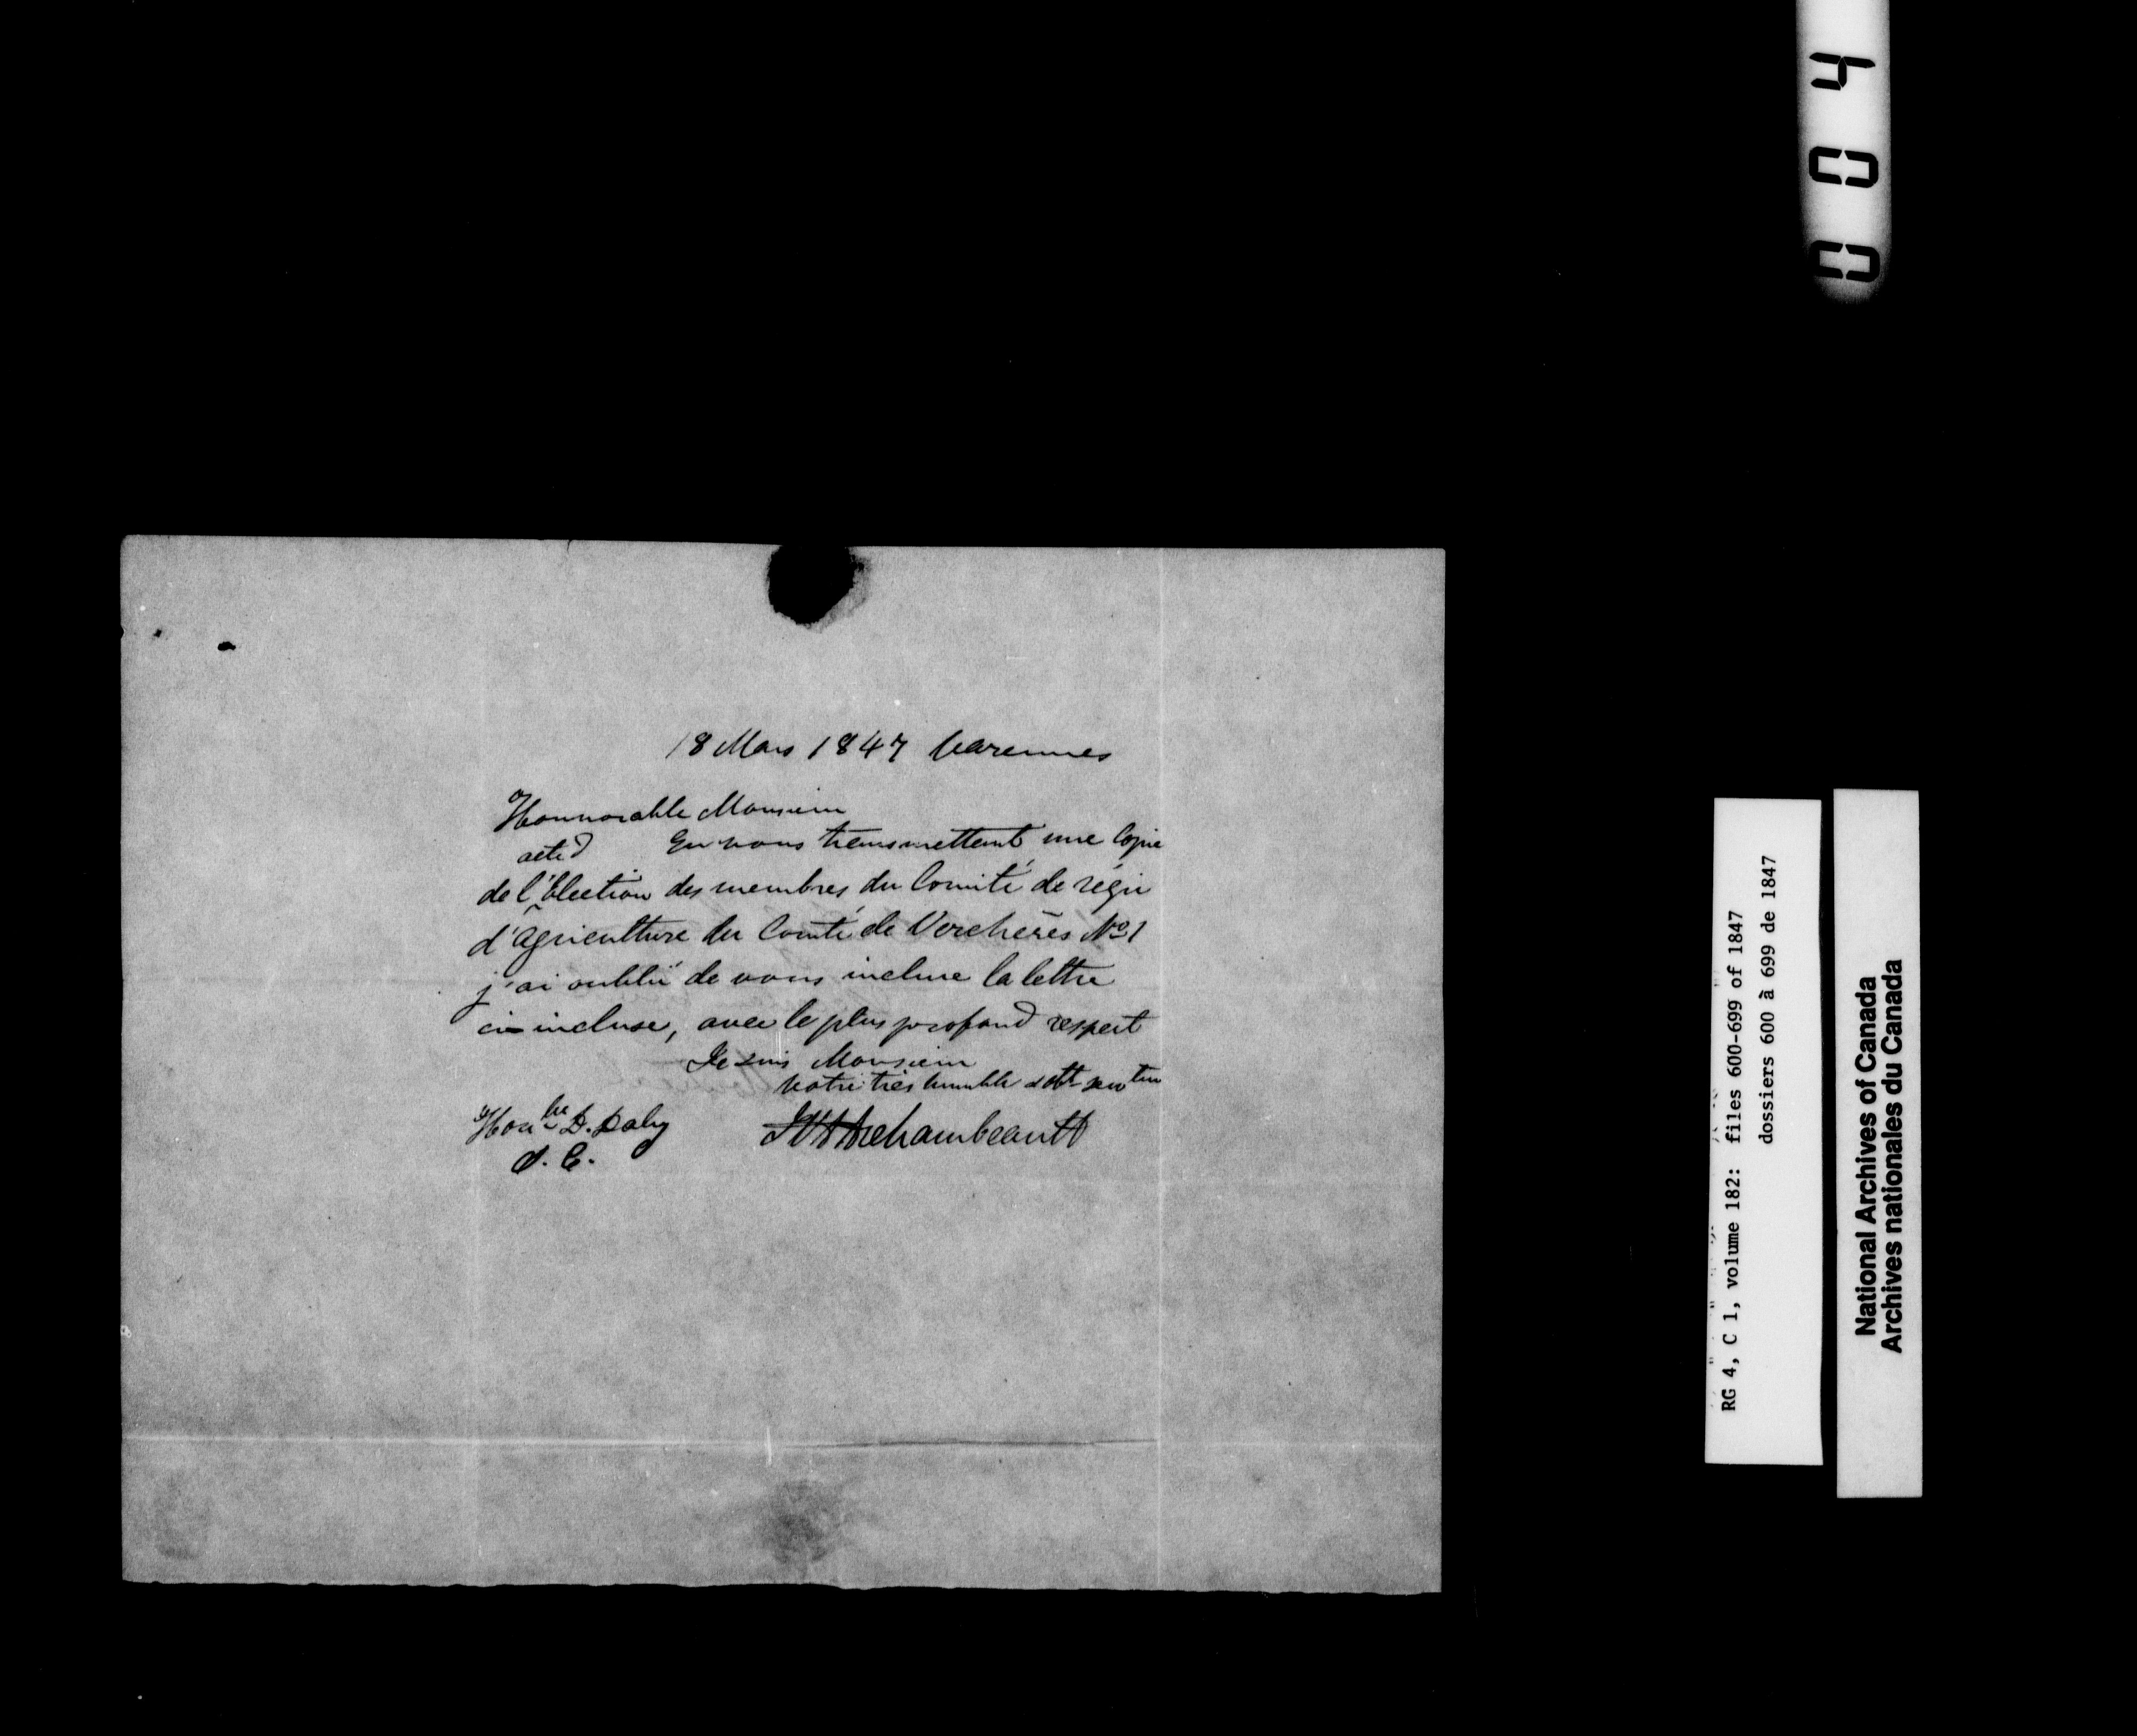 18 Mars 1847 Varennes
Honnorable Monsieur
En vous transmettant une Copie
acte d
de l'Élection des membres du Comité de régie
d'Agriculture du Comté de Verchères No 1
j'ai oublié de vous inclure la lettre
ci-incluse, avec le plus profond respect
Je suis Monsieur
Votre très humble &
Honble D. Daly
Archambeault
S. C.
004
RG 4, C 1, volume 182: files 600-699 of 1847
dossiers 600 à 699 de 1847
National Archives of Canada
Archives nationales du Canada